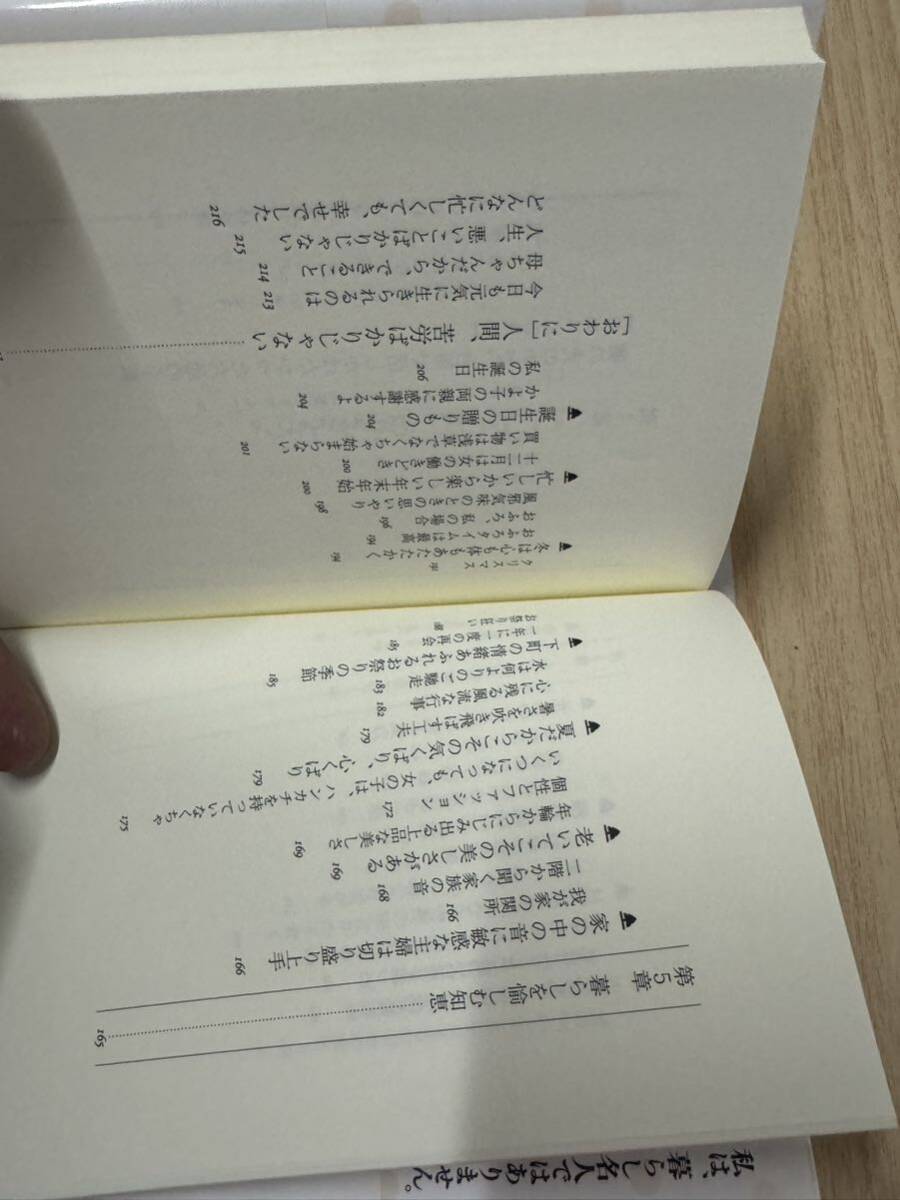 私は、暮らし名人ではありません。
第5章 暮らしを愉しむ知恵 …… 165
▲家の中の音に敏感な主婦は切り盛り上手 166
我が家の関所 166
二階から聞く家族の音 168
▲老いてこその美しさがある 169
年輪からにじみ出る上品な美しさ 169
個性とファッション 172
いくつになっても、女の子は、ハンカチを持っていなくちゃ 175
▲夏だからこその気くばり、心くばり 179
暑さを吹き飛ばす工夫 179
心に残る風流な行事 182
水は何よりのご馳走 183
▲下町の情緒あふれるお祭りの季節 185
一年に一度の再会 185
お祭り狂い 188
クリスマス 191
▲冬は心も体もあたたかく 194
おふろタイムは最高 194
おふろ、私の場合 196
風邪気味のときの思いやり 198
▲忙しいから楽しい年末年始 200
十二月は女の働きどき 200
買い物は浅草でなくちゃ始まらない 201
▲誕生日の贈りもの 204
かよ子の両親に感謝するよ 204
私の誕生日 206
[おわりに]人間、苦労ばかりじゃない ……
今日も元気に生きられるのは 213
母ちゃんだから、できること 214
人生、悪いことばかりじゃない 215
どんなに忙しくても、幸せでした 216